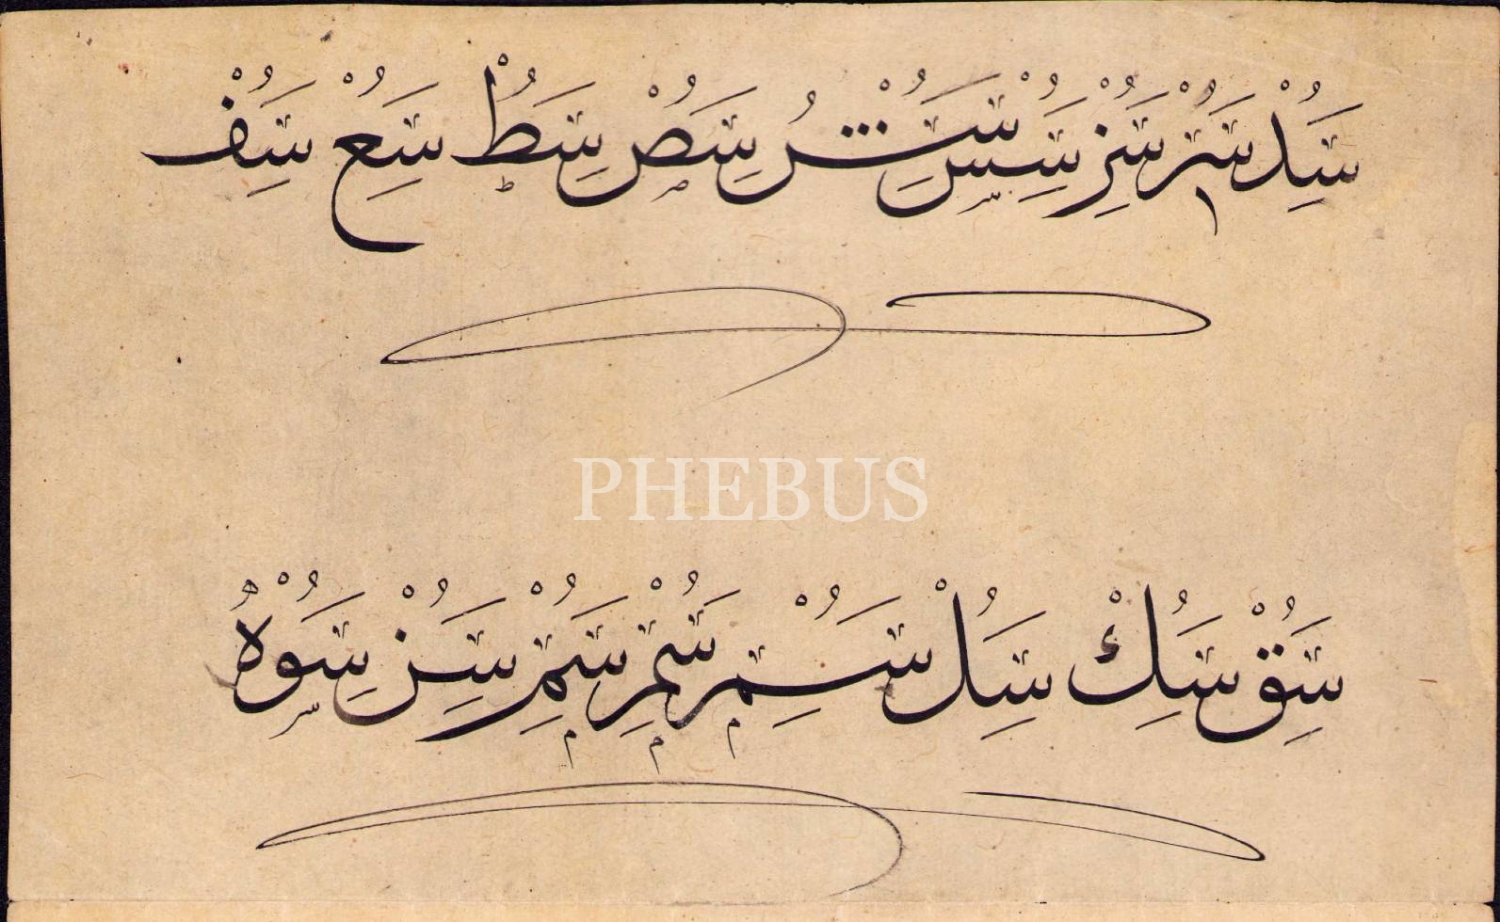 سد سر سز سس سش سص سط سع سف
PHEBUS
سق سك سل سم سم سم سن سو ه